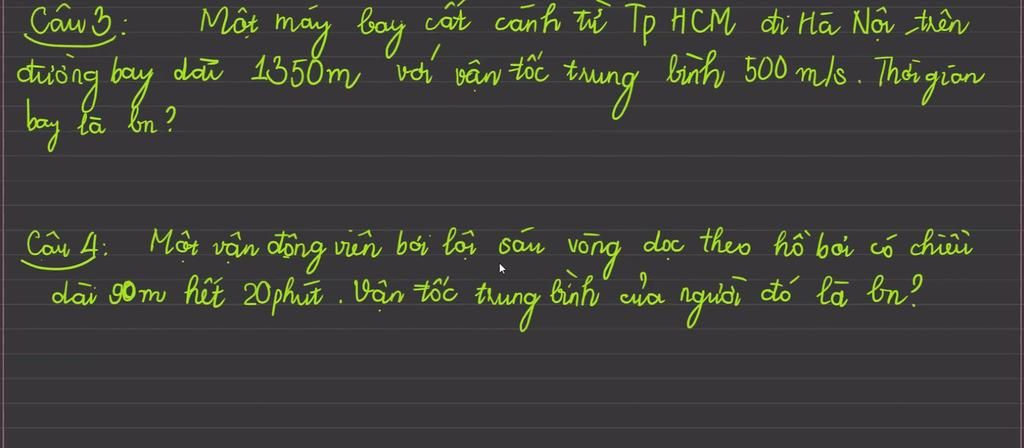 Câu 3: Một máy bay cất cánh từ Tp HCM đi Hà Nội trên
đường bay dài 1350m với vận tốc trung bình 500 m/s. Thời gian
bay là bn?
Câu 4: Một vận động viên bơi lội sáu vòng dọc theo hồ bơi có chiều
dài 90m hết 20 phút. Vận tốc trung bình của người đó là bn?